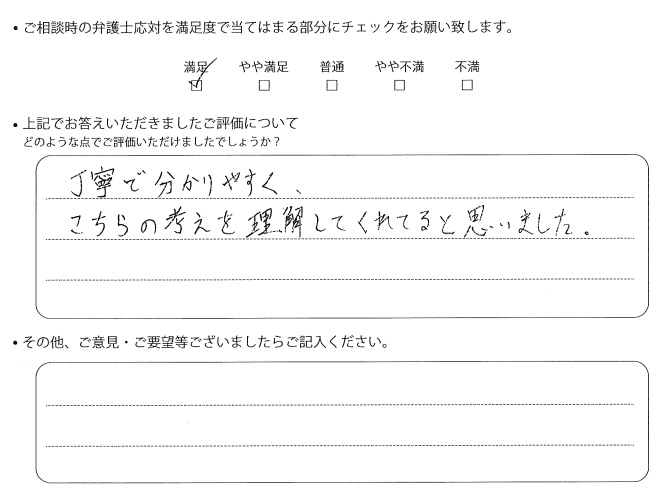 • ご相談時の弁護士応対を満足度で当てはまる部分にチェックをお願い致します。
満足 やや満足 普通 やや不満 不満
☑ □ □ □ □
• 上記でお答えいただきましたご評価について
どのような点でご評価いただけましたでしょうか？
丁寧で分かりやすく、
こちらの考えを理解してくれてると思いました。
• その他、ご意見・ご要望等ございましたらご記入ください。